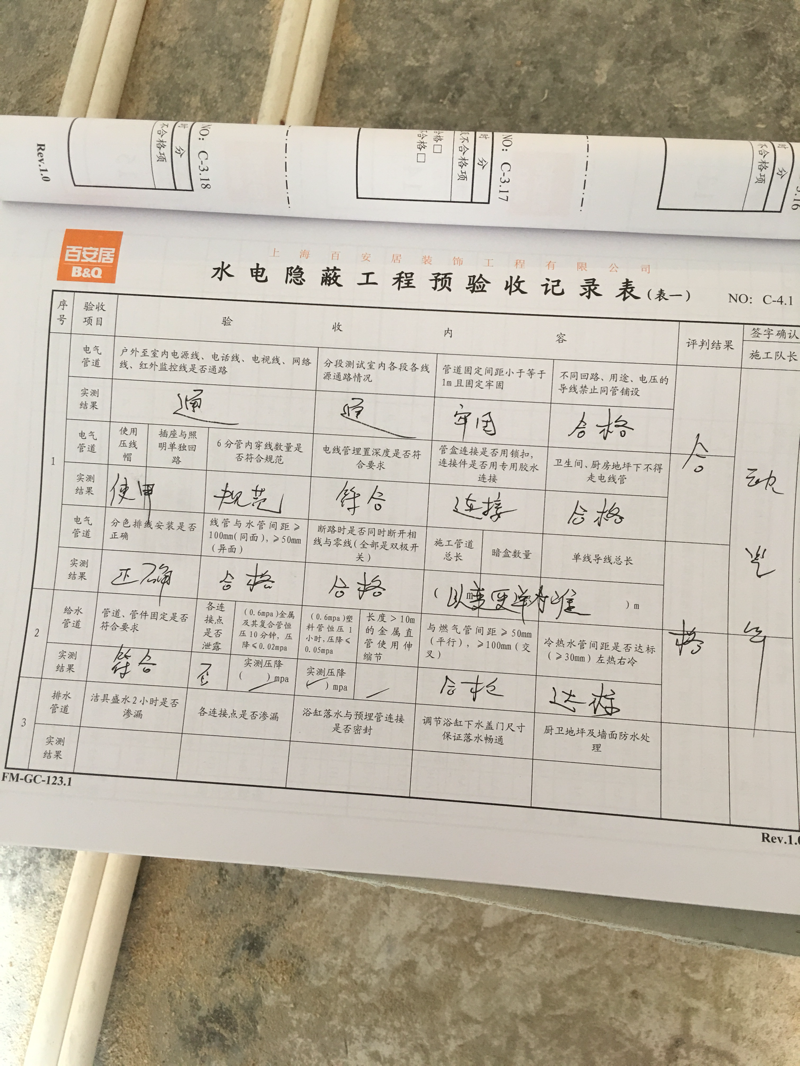 Rev.1.0
NO: C-3.18
片 分
不合格项
NO: C-3.17
片 分
不合格项
合格□
合格□
3.16
分
不合格项
百安居
B&Q
上海百安居装饰工程有限公司
水电隐蔽工程预验收记录表(表一)
NO: C-4.1
序号 验收项目 验收内容 评判结果 签字确认
施工队长
1
电气管道
户外至室内电源线、电话线、电视线、网络线、红外监控线是否通路
分段测试室内各段各线源通路情况
管道固定间距小于等于1m且固定牢固
不同回路、用途、电压的导线禁止同管铺设
实测结果 通 通 牢固 合格
电气管道
使用压线帽
插座与照明单独回路
6分管内穿线数量是否符合规范
电线管埋置深度是否符合要求
管盒连接是否用锁扣,连接件是否用专用胶水连接
卫生间、厨房地坪下不得走电线管
实测结果 使用 规范 符合 连接 合格
电气管道
分色排线安装是否正确
线管与水管间距≥100mm(同面),≥50mm(异面)
断路时是否同时断开相线与零线(全部是双极开关)
施工管道总长
暗盒数量
单线导线总长
实测结果 正确 合格 合格 (以变更单为准)m
合格
2
给水管道
管道、管件固定是否符合要求
各连接点是否泄露
(0.6mpa)金属及其复合管恒压10分钟,压降≤0.02mpa
(0.6mpa)塑料管恒压1小时,压降≤0.05mpa
长度>10m的金属直管使用伸缩节
与燃气管间距≥50mm(平行),≥100mm(交叉)
冷热水管间距是否达标(≥30mm)左热右冷
实测结果 符合 否 实测压降( )mpa 实测压降( )mpa 合格 达标
3
排水管道
洁具盛水2小时是否渗漏
各连接点是否渗漏
浴缸落水与预埋管连接是否密封
调节浴缸下水盖门尺寸保证落水畅通
厨卫地坪及墙面防水处理
实测结果
FM-GC-123.1
Rev.1.0